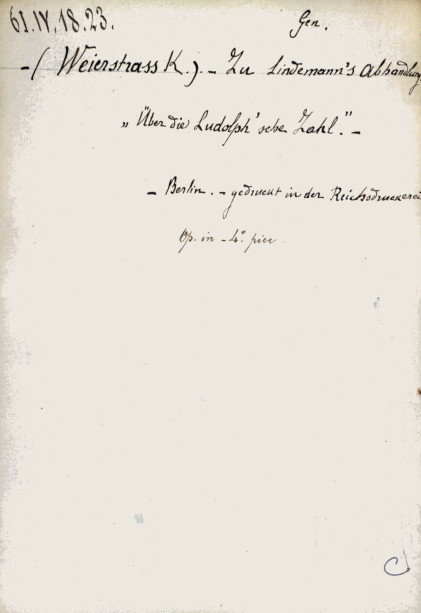 61.IV.18.23.
Gen.
-(Weierstrass K.).- Zu Lindemann's Abhandlung
„Über die Ludolph'sche Zahl."-
- Berlin. - gedruckt in der Reichsdruckerei
Op. in - 4°. picc.
C